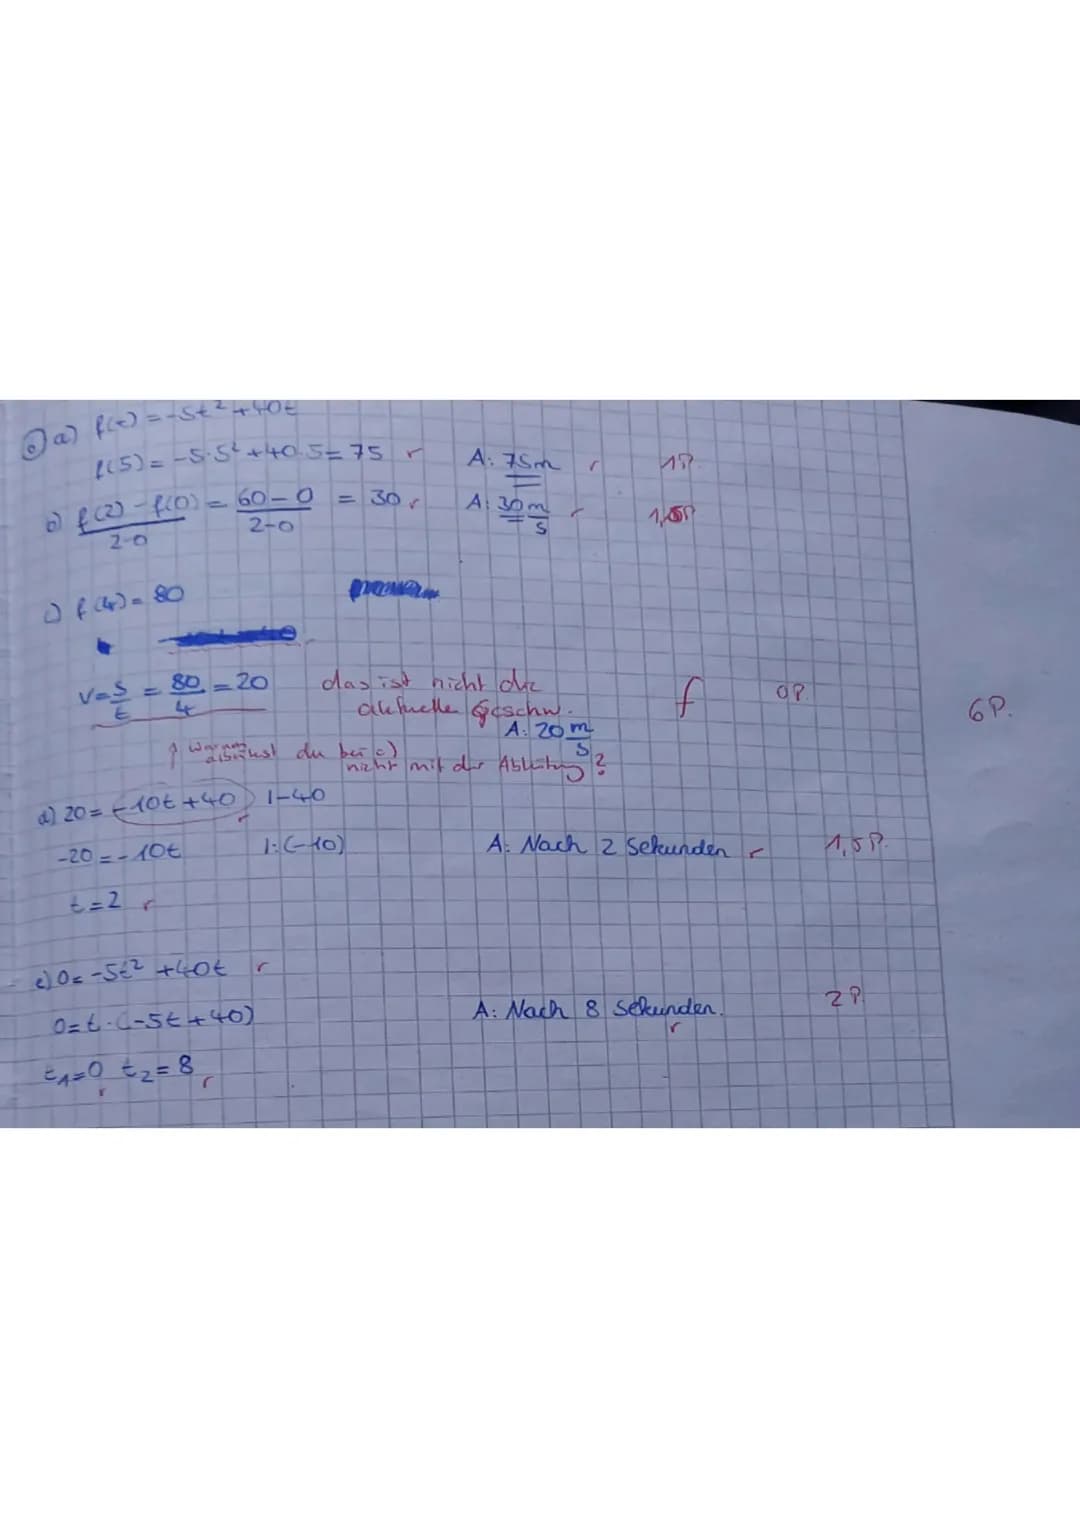 6) a) f(t) = -5t² + 40t
f(5) = -5·5² + 40·5 = 75 r A: 75m r 1P.
b) f(2) - f(0) / 2-0 = 60 - 0 / 2-0 = 30 r A: 30 m/s r 1,5P
c) f(4) = 80
v = s/t = 80/4 = 20 das ist nicht die f 0P. 6P.
aktuelle Geschw.
A: 20 m/s
↑ Warum du bei c)
nicht mit der Ableitung?
d) 20 = -10t + 40 | -40
-20 = -10t | :(-10) A: Nach 2 Sekunden r 1,5P.
t = 2 r
e) 0 = -5t² + 40t r
0 = t · (-5t + 40) A: Nach 8 Sekunden. r 2P.
t₁ = 0 r t₂ = 8 r